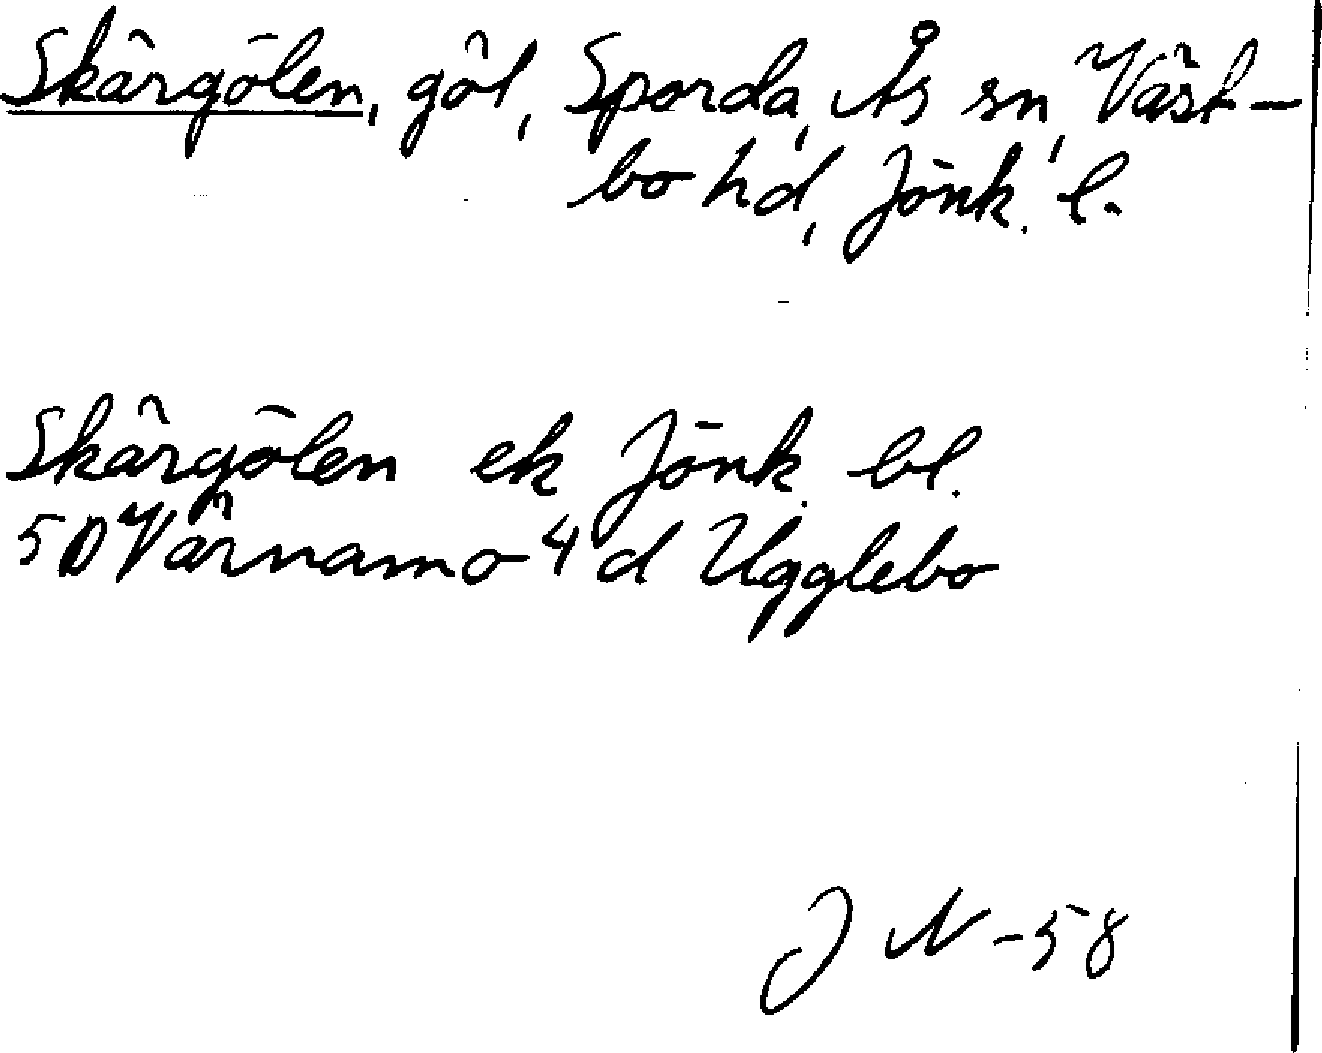 Skärgölen, göl, Sporda, Ås sn, Väst-
bo hd, Jönk. l.
Skärgölen ek Jönk. bl.
5D Värnamo 4 d Ugglebo
J N -58